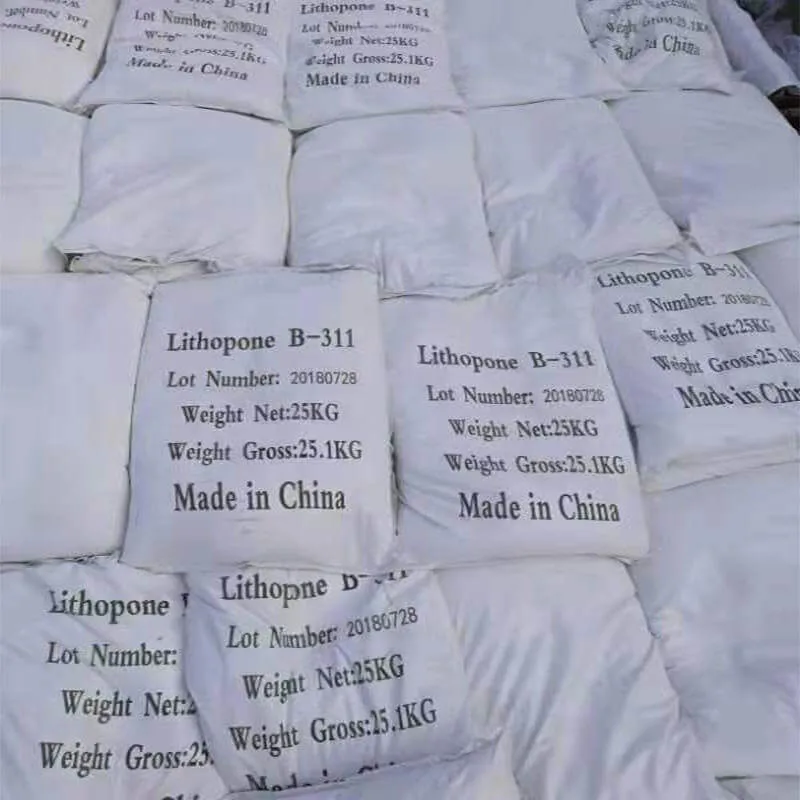 Lithopone
Lot Number:
B-311
Lot Number: 20180728
Weight Gross:25.1KG
Made in China
Lithopone B-311
Lot
Weight Net:25KG
Weight Gross:25.1KG
Made in China
Weight Gross:25.1KG
Made in China
Lithopone B-311
Lot Number: 20180728
Weight Net:25KG
Weight Gross:25.1KG
Made in China
Lithopone B-311
Lot Number: 20180728
Weight Net:25KG
Weight Gross:25.1KG
Made in China
Lithopone B-311
Lot Number: 20180728
Weight Net:25KG
Weight Gross:25.1K
Made in Chin
Lithopone
Lot Number:
Weight Net:2
Weight Gross:25.
Lithopone
Lot Number: 20180728
Weight Net:25KG
Weight Gross:25.1KG